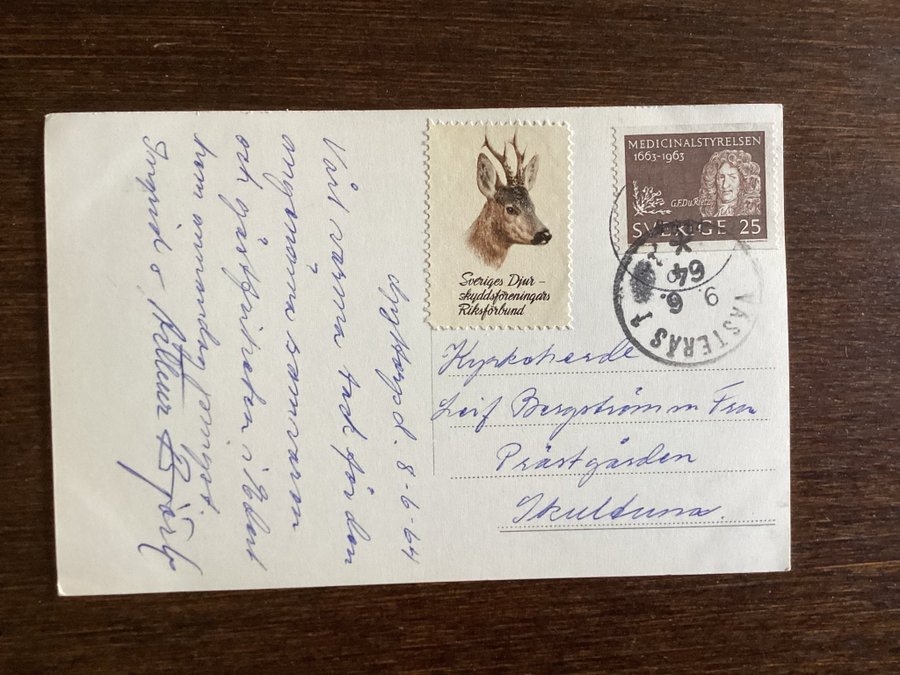 8-6-64
Vårt varma tack för den
angenäma samvaron
och gästfriheten i Edert
hem onsdag
Ingrid o Björk
Sveriges Djur-
skyddsföreningars
Riksförbund
MEDICINALSTYRELSEN
1663-1963
G.F.Du Rietz
SVERIGE 25
VÄSTERÅS 1
9. 6.
64
Kyrkoherde
Leif Bergström m Fru
Prästgården
Skultuna.